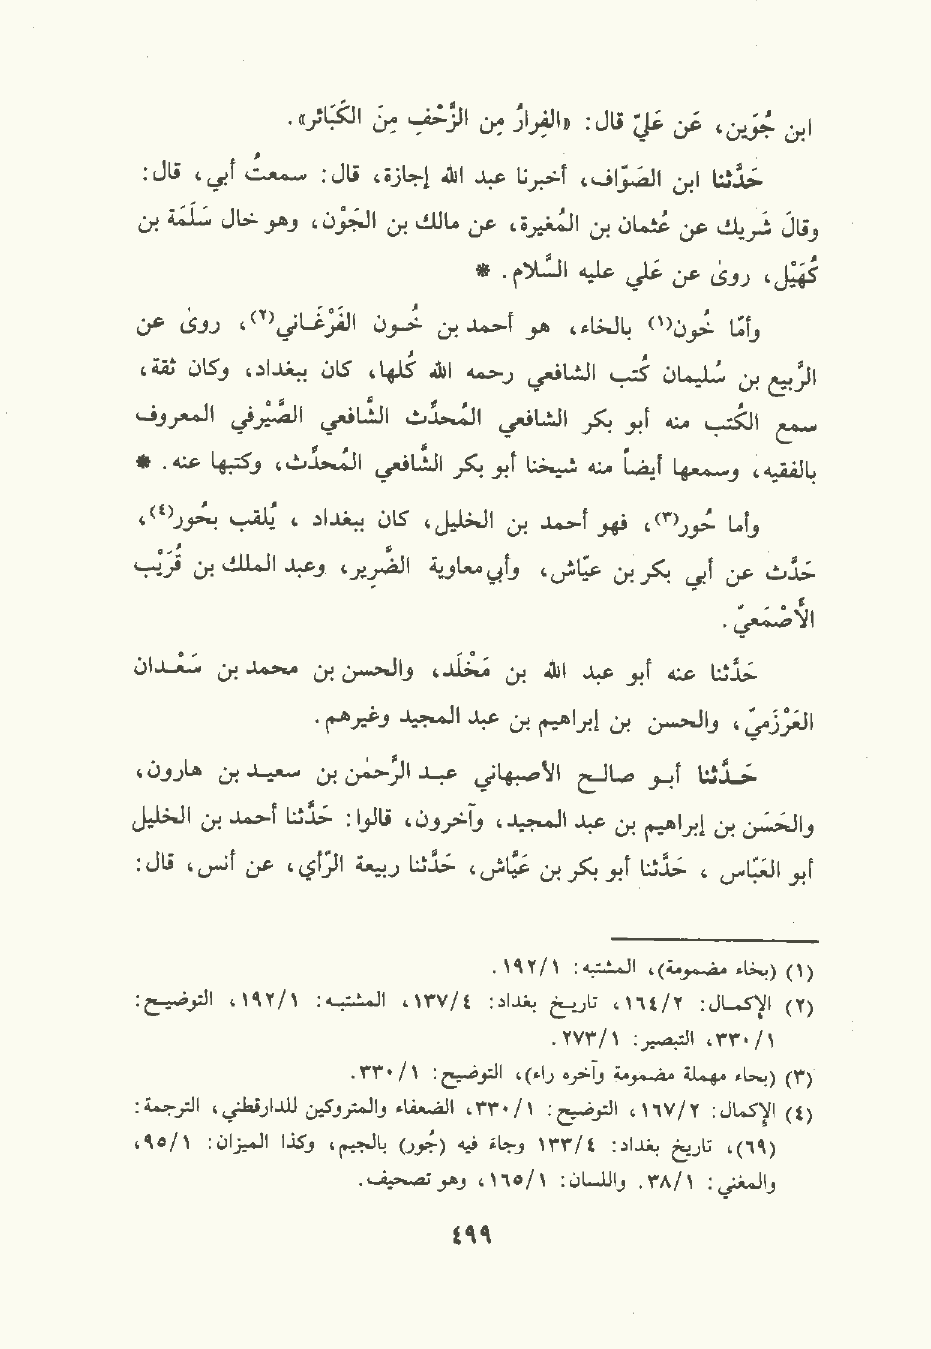 ابن جُوَين، عَن عَليّ قال: «الفِرارُ مِن الزَّحْفِ مِنَ الكَبَائر».
حَدَّثنا ابن الصَوّاف، أخبرنا عبد الله إجازة، قال: سمعتُ أبي، قال:
وقالَ شَريك عن عُثمان بن المُغيرة، عن مالك بن الجَوْن، وهو خال سَلَمَة بن
كُهَيْل، روىٰ عن عَلي عليه السَّلام. *
وأمّا خُون(١) بالخاء، هو أحمد بن خُـون الفَرْغَـاني(٢)، روىٰ عن
الرَّبيع بن سُليمان كُتب الشافعي رحمه الله كُلها، كان ببغداد، وكان ثقة،
سمع الكُتب منه أبو بكر الشافعي المُحدِّث الشَّافعي الصَّيْرفي المعروف
بالفقيه، وسمعها أيضاً منه شيخنا أبو بكر الشَّافعي المُحدِّث، وكتبها عنه. *
وأما حُور(٣)، فهو أحمد بن الخليل، كان ببغداد ، يُلقب بحُور(٤)،
حَدَّث عن أبي بكر بن عيّاش، وأبي معاوية الضَّرِير، وعبد الملك بن قُرَيْب
الأَصْمَعيّ.
حَدَّثنا عنه أبو عبد الله بن مَخْلَد، والحسن بن محمد بن سَعْـدان
العَرْزَميّ، والحسن بن إبراهيم بن عبد المجيد وغيرهم.
حَـدَّثنا أبـو صالـح الأصبهاني عبـد الرَّحمٰن بن سعيـد بن هارون،
والحَسَن بن إبراهيم بن عبد المجيد، وآخرون، قالوا: حَدَّثنا أحمد بن الخليل
أبو العَبّاس ، حَدَّثنا أبو بكر بن عَيَّاش، حَدَّثنا ربيعة الرَّأي، عن أنس، قال:
(١) (بخاء مضمومة)، المشتبه: ١٩٢/١.
(٢) الإكمـال: ١٦٤/٢، تاريـخ بغداد: ١٣٧/٤، المشتبـه: ١٩٢/١، التوضيـح:
٣٣٠/١، التبصير: ٢٧٣/١.
(٣) (بحاء مهملة مضمومة وآخره راء)، التوضيح: ٣٣٠/١.
(٤) الإكمال: ١٦٧/٢، التوضيح: ٣٣٠/١، الضعفاء والمتروكين للدارقطني، الترجمة:
(٦٩)، تاريخ بغداد: ١٣٣/٤ وجاءَ فيه (جُور) بالجيم، وكذا الميزان: ٩٥/١،
والمغني: ٣٨/١. واللسان: ١٦٥/١، وهو تصحيف.
٤٩٩